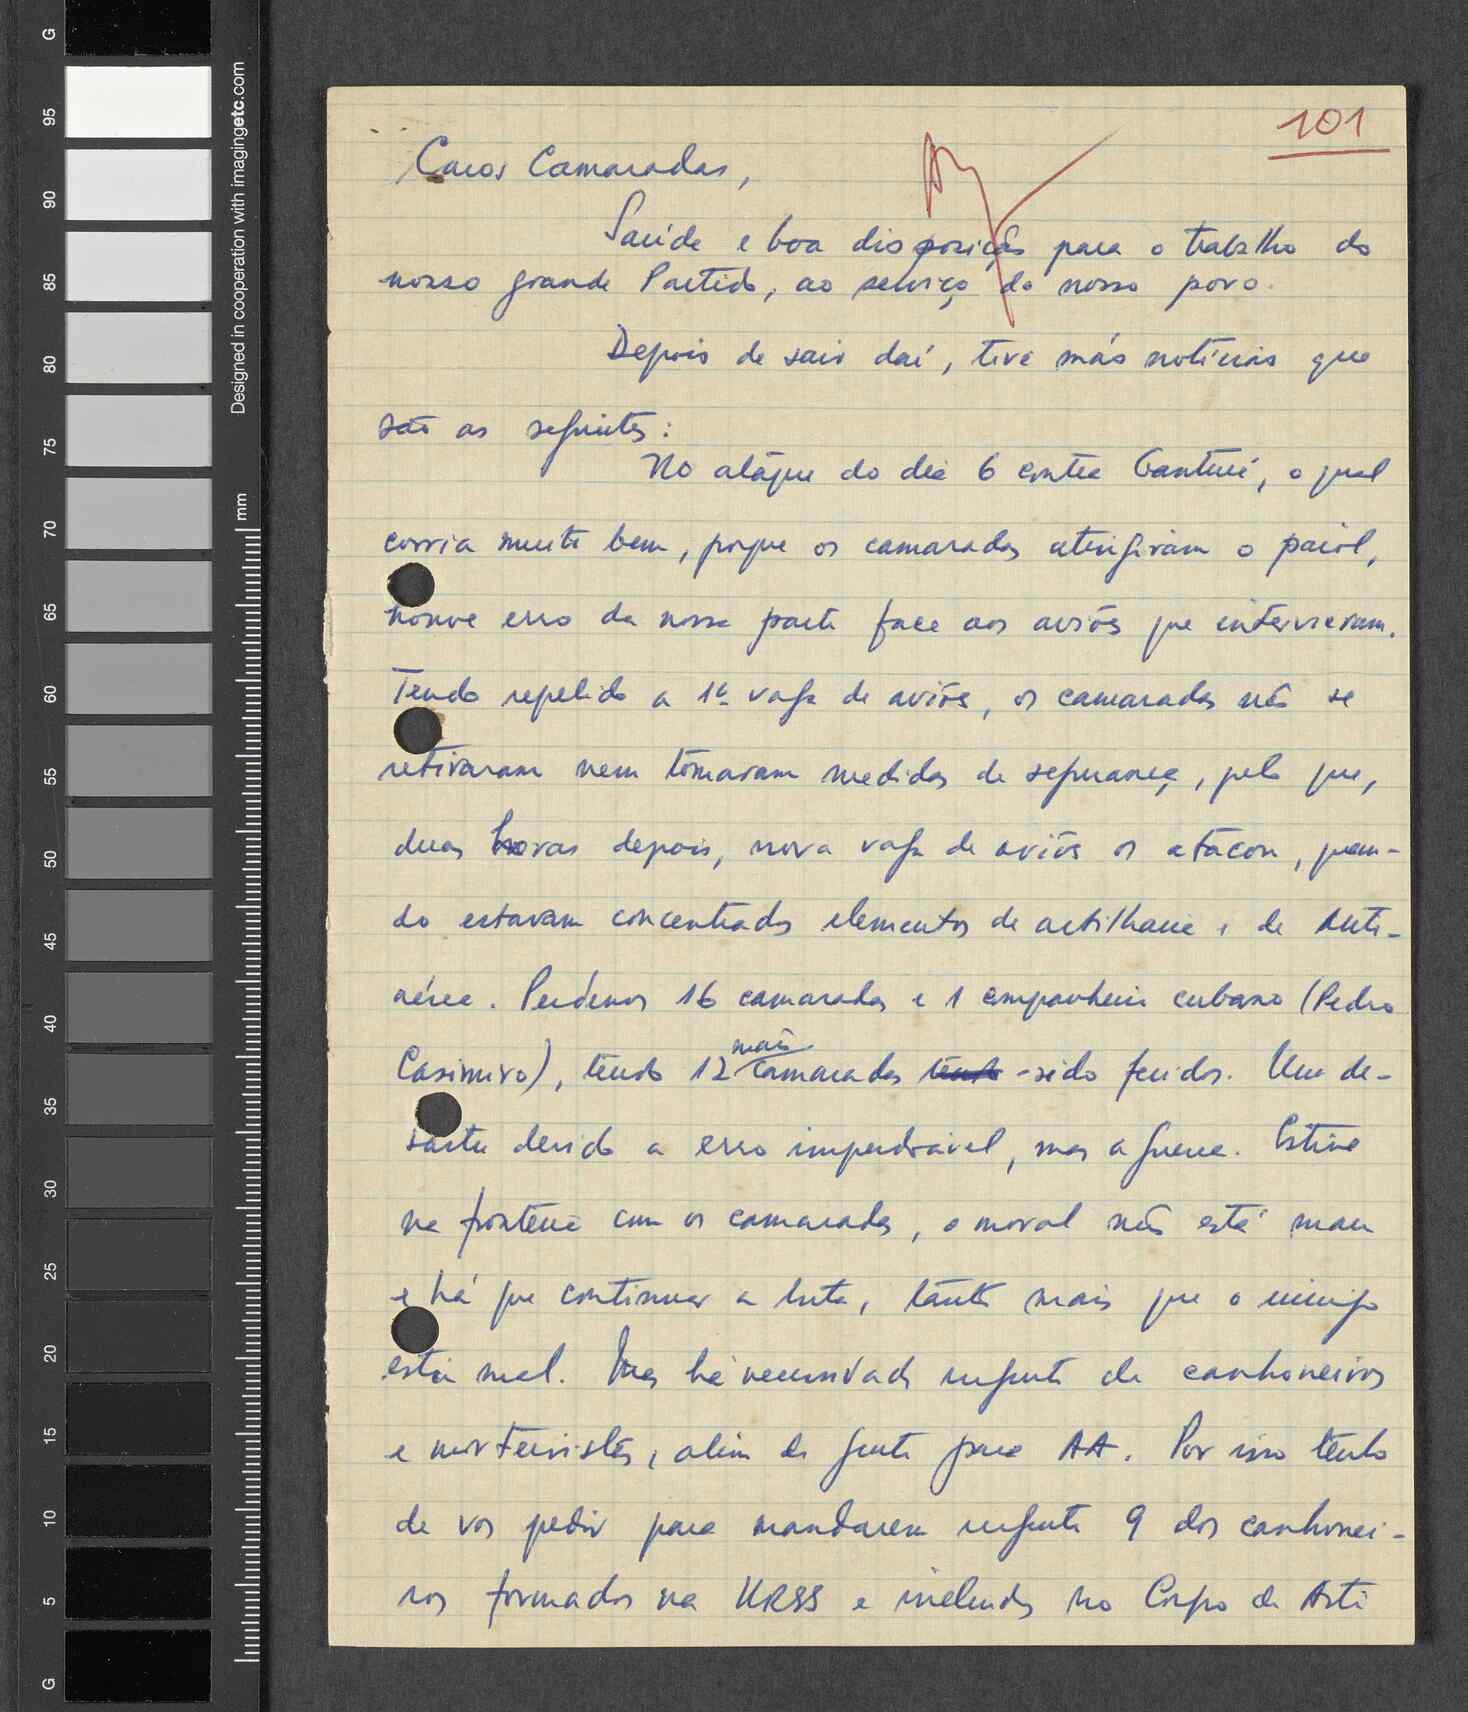 101
Caros Camaradas,
Saúde e boa disposição para o trabalho do
nosso grande Partido, ao serviço do nosso povo.
Depois de sair daí, tive más notícias que
são as seguintes:
No ataque do dia 6 contra Canturé, o qual
corria muito bem, porque os camaradas atingiram o paiol,
houve erro da nossa parte face aos aviões que intervieram.
Tendo repelido a 1ª vaga de aviões, os camaradas não se
retiraram nem tomaram medidas de segurança, pelo que,
duas horas depois, nova vaga de aviões os atacou, quan-
do estavam concentrados elementos de artilharia e de Anti-
aérea. Perdemos 16 camaradas e 1 companheiro cubano (Pedro
Casimiro), tendo 12 mais camaradas tendo - sido feridos. Um de-
sastre devido a erro imperdoável, mas a guerra. Estive
na fronteira com os camaradas, o moral não está mau
e há que continuar a luta, tanto mais que o inimigo
está mal. Mas há necessidade urgente de canhoneiros
e morteiristas, além de gente para AA. Por isso tenho
de vos pedir para mandarem urgente 9 dos canhonei-
ros formados na URSS e incluidos no Corpo de Arti
G
95
90
85
80
75
70
65
60
55
50
45
40
35
30
25
20
15
10
5
G
Designed in cooperation with imagingetc.com
mm